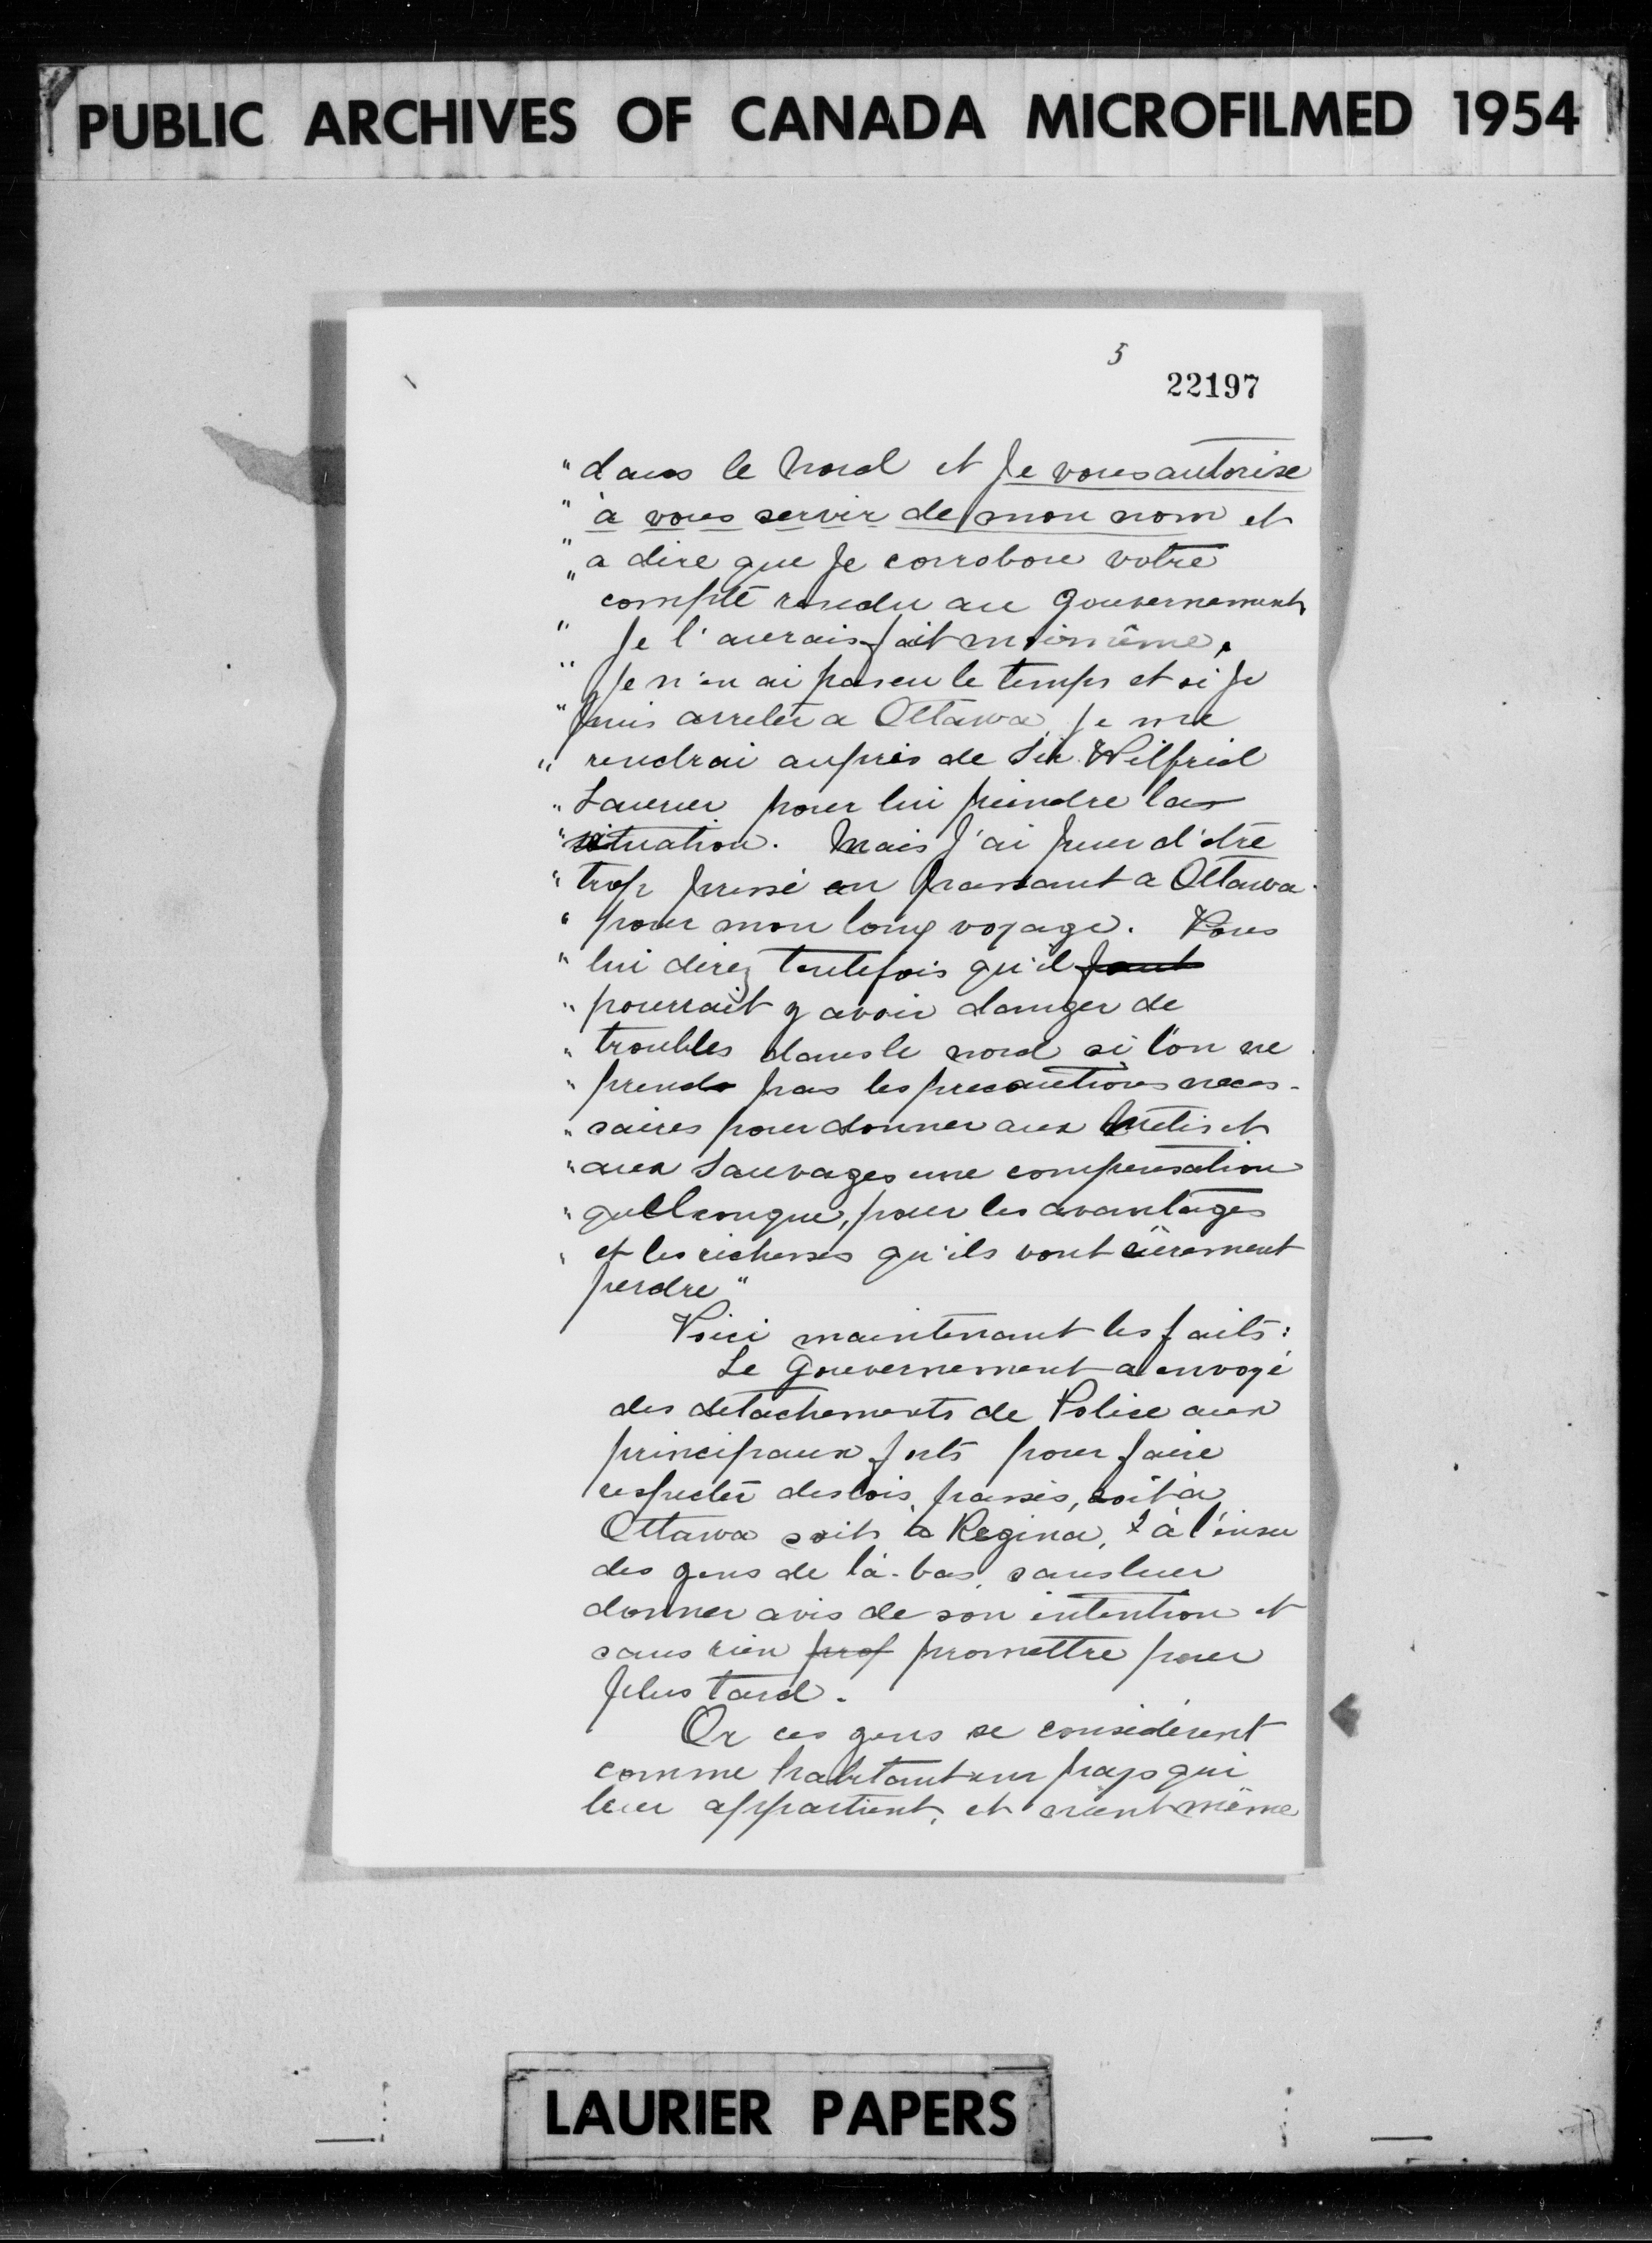 PUBLIC ARCHIVES OF CANADA MICROFILMED 1954
5
22197
" dans le Nord et Je vous autorise
" à vous servir de mon nom et
" a dire que Je corrobore votre
" compte rendu au Gouvernement
" Je l'aurais fait moi même,
" Je n'en ai pas eu le temps et si Je
" puis arreter a Ottawa, Je me
" rendrai auprès de Sir Wilfrid
" Laurier pour lui peindre la
" situation. Mais J'ai peur d'être
" trop pressé en passant a Ottawa
" pour mon long voyage. Vous
" lui direz toutefois qu'il faut
" pourrait y avoir danger de
" troubles dans le nord si l'on ne
" prend pas les precautions neces-
" saires pour donner aux Métis et
" aux Sauvages une compensation
" quelconque, pour les avantages
" et les richesses qu'ils vont sûrement
perdre"
Voici maintenant les faits:
Le Gouvernement a envoyé
des detachements de Police aux
principaux forts pour faire
respecter des lois, passés, soit à
Ottawa soit a Regina, & à l'insu
des gens de là-bas, sans leur
donner avis de son intention et
sans rien prof promettre pour
plus tard.
Or ces gens se considèrent
comme habitant un pays qui
leur appartient, et crient même
LAURIER PAPERS